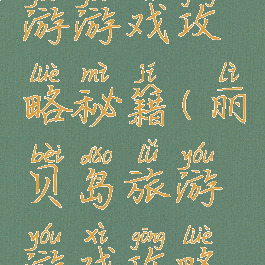 游游戏攻
lüè mì jí lì
略秘籍(丽
bèi dǎo lǚ yóu
贝岛旅游
yóu xì gōng lüè
游戏攻略